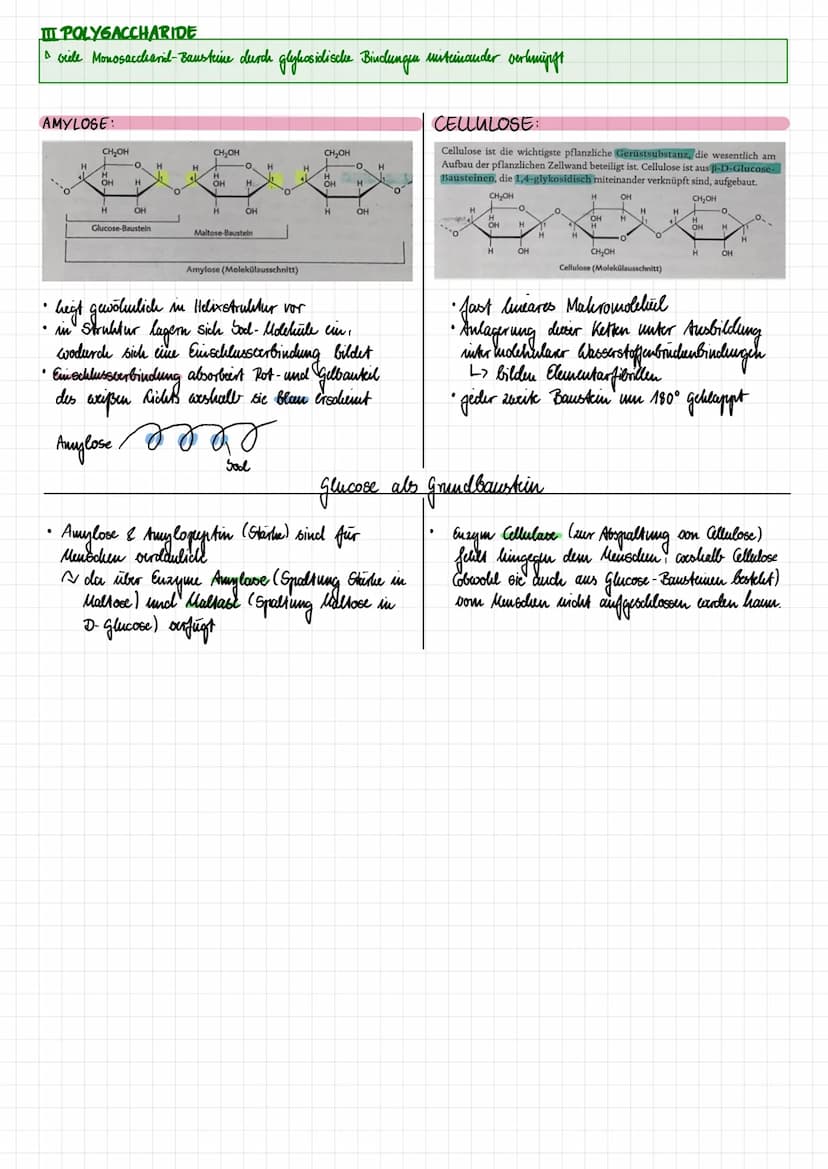 III POLYSACCHARIDE
viele Monosaccharid-Bausteine durch glykosidische Bindungen miteinander verknüpft
AMYLOSE:
CH₂OH CH₂OH CH₂OH
H O H H O H H O H
H H H
OH H OH H OH H
O O O O
H OH H OH H OH
Glucose-Baustein
Maltose-Baustein
Amylose (Molekülausschnitt)
• liegt gewöhnlich in Helixstruktur vor
• in Struktur lagern sich Iod-Moleküle ein,
wodurch sich eine Einschlussverbindung bildet
• Einschlussverbindung absorbiert Rot- und Gelbanteil
des weißen Lichts weshalb sie blau erscheint
Amylose
Iod
CELLULOSE:
Cellulose ist die wichtigste pflanzliche Gerüstsubstanz, die wesentlich am
Aufbau der pflanzlichen Zellwand beteiligt ist. Cellulose ist aus β-D-Glucose-
Bausteinen, die 1,4-glykosidisch miteinander verknüpft sind, aufgebaut.
CH₂OH H OH CH₂OH
H O H OH H H H O O
OH H H OH H
O H H O H
H OH CH₂OH H OH
Cellulose (Molekülausschnitt)
• fast lineares Makromolekül
• Anlagerung dieser Ketten unter Ausbildung
intermolekularer Wasserstoffbrückenbindungen
↳ bilden Elementarfibrillen
• jeder zweite Baustein um 180° geklappt
Glucose als Grundbaustein
• Amylose & Amylopektin (Stärke) sind für
Menschen verdaulich
da über Enzyme Amylase (Spaltung Stärke in
Maltose) und Maltase (Spaltung Maltose in
D-Glucose) verfügt
• Enzym Cellulase (zur Abspaltung von Cellulose)
fehlt hingegen dem Menschen, weshalb Cellulose
(obwohl sie auch aus Glucose-Bausteinen besteht)
vom Menschen nicht aufgeschlossen werden kann.